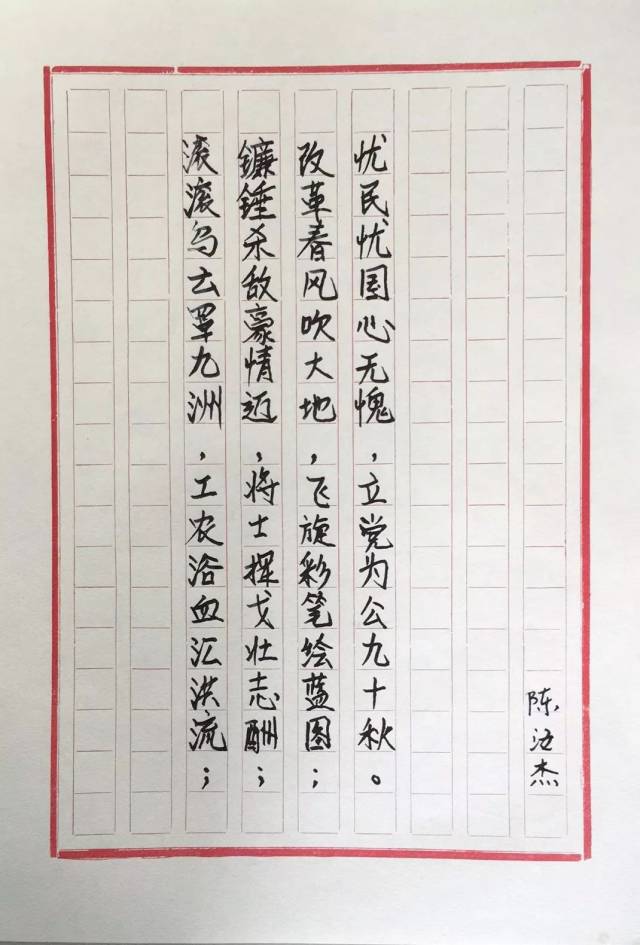 滚滚乌云罩九洲，工农浴血汇洪流；
鐮錘杀敌豪情迈，将士挥戈壮志酬；
改革春风吹大地，飞旋彩笔绘蓝图；
忧民忧国心无愧，立党为公九十秋。
陈杰